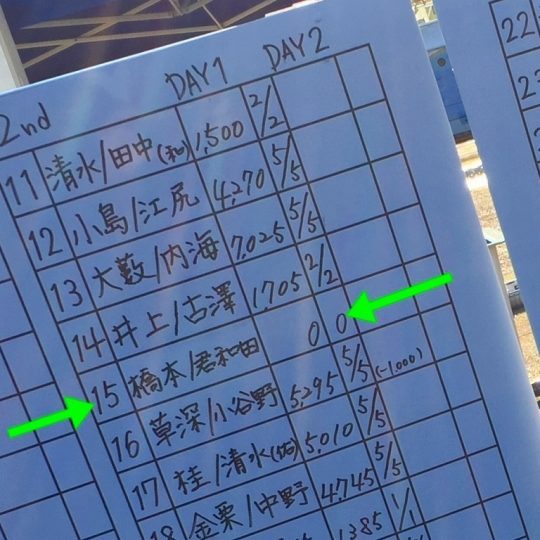 2nd DAY1 DAY2
11 清水/田中(和) 1,500 2/2
12 小島/江尻 4,270 5/5
13 大藪/内海 7,025 5/5
14 井上/古澤 1,705 2/2
15 橋本/君和田 0 0
16 草深/小谷野 5,295 5/5 (-1,000)
17 桂/清水(佑) 5,010 5/5
18 金栗/中野 4,745 5/5
1,385 1/1
22
23